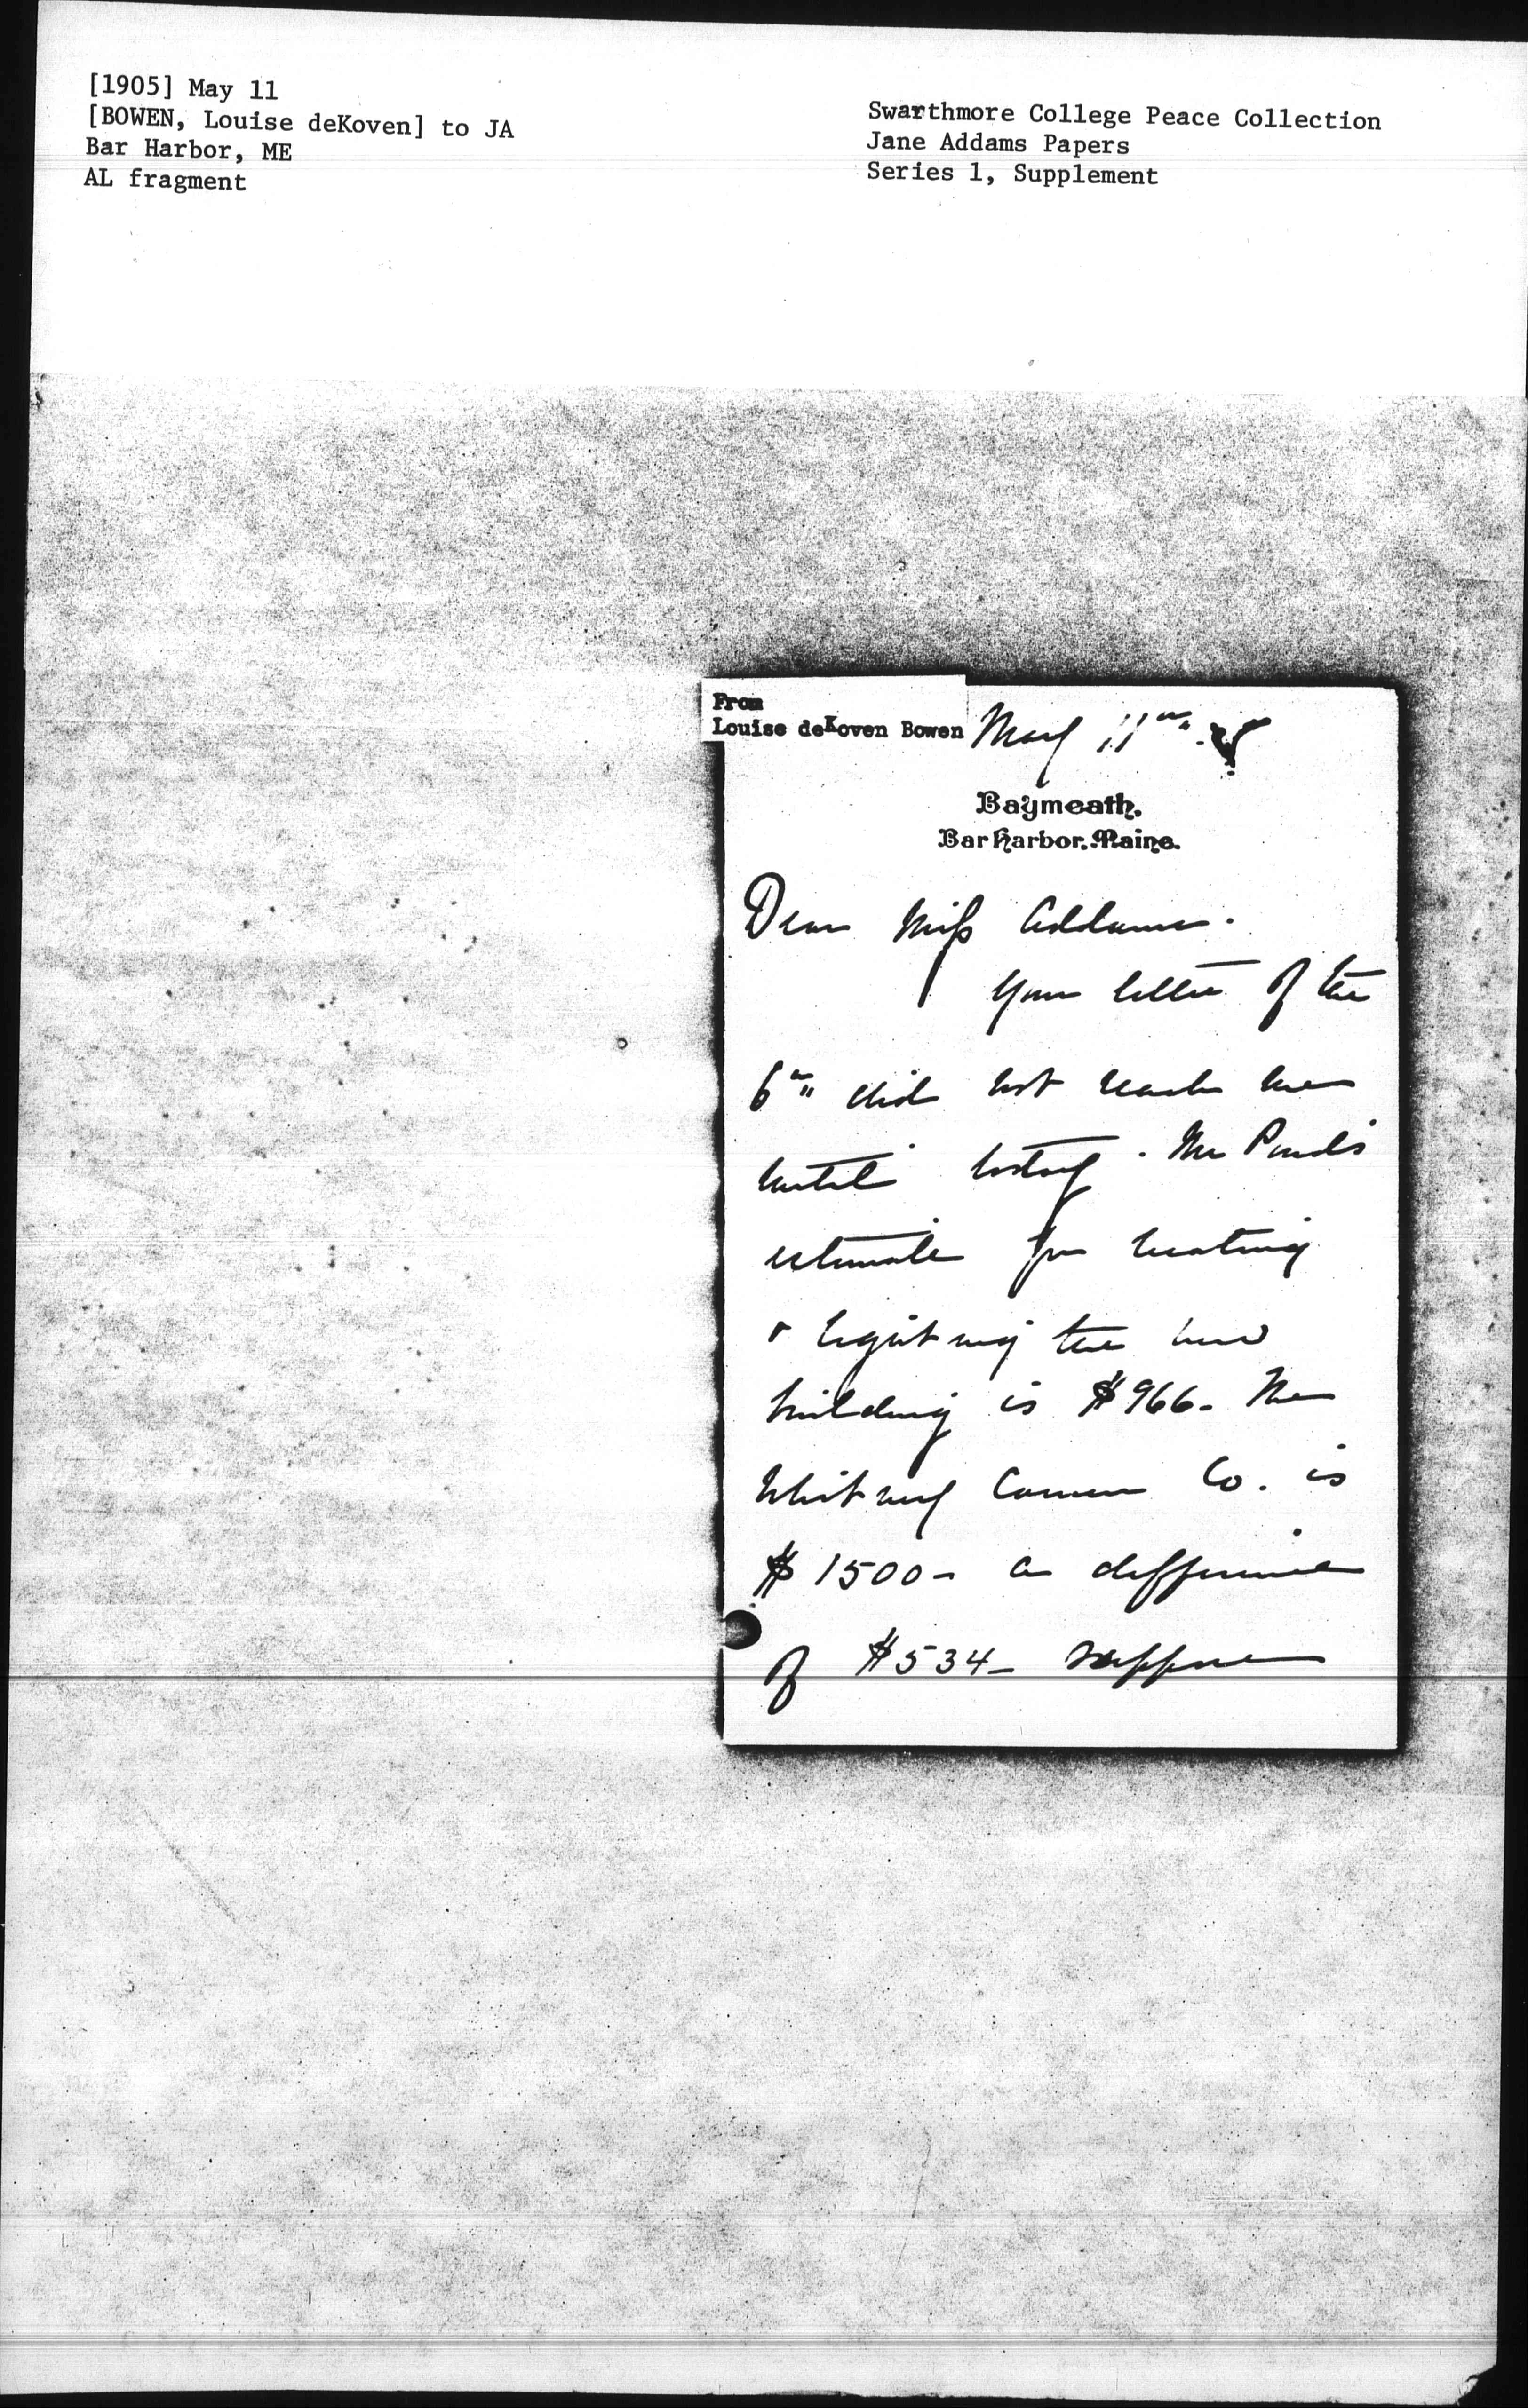 [1905] May 11
[BOWEN, Louise deKoven] to JA
Bar Harbor, ME
AL fragment
Swarthmore College Peace Collection
Jane Addams Papers
Series 1, Supplement
From
Louise deKoven Bowen
May 11th
Baymeath.
Bar Harbor. Maine.
Dear Miss Addams.
Your letter of the
6th did not reach me
until today. Mr Pond's
estimate for heating
& lighting the new
building is $966- The
Whitney Co. is
$1500- a difference
of $534- suppose